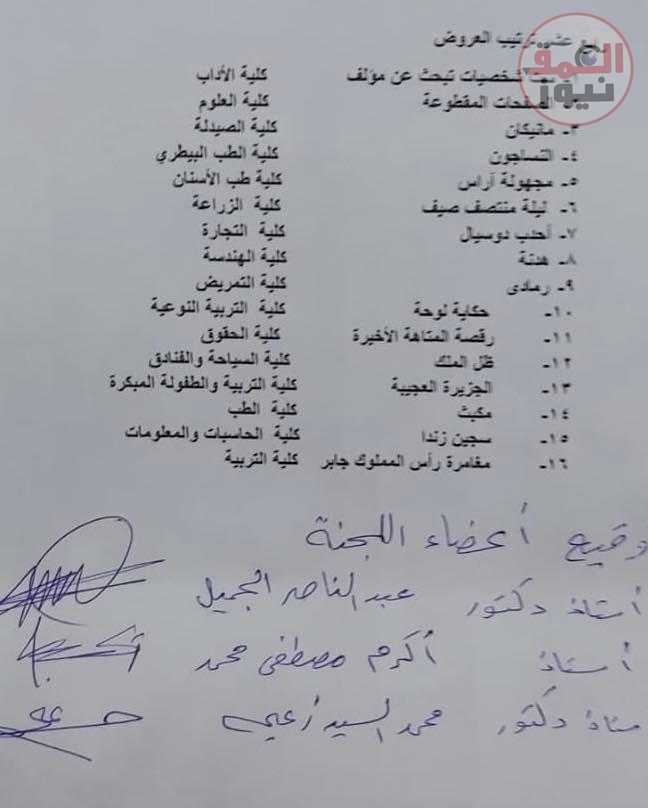 القمة نيوز
رابع عشر ترتيب العروض
شخصيات تبحث عن مؤلف كلية الأداب
الصفحات المقطوعة كلية العلوم
٣- مانيكان كلية الصيدلة
٤- النساجون كلية الطب البيطري
٥- مجهولة آراس كلية طب الأسنان
٦- ليلة منتصف صيف كلية الزراعة
٧- أحدب دوسيال كلية التجارة
٨- هدنة كلية الهندسة
٩- رمادى كلية التمريض
١٠- حكاية لوحة كلية التربية النوعية
١١- رقصة المتاهة الأخيرة كلية الحقوق
١٢- ظل الملك كلية السياحة والفنادق
١٣- الجزيرة العجيبة كلية التربية والطفولة المبكرة
١٤- مكبث كلية الطب
١٥- سجين زندا كلية الحاسبات والمعلومات
١٦- مغامرة رأس المملوك جابر كلية التربية
وقيع أعضاء اللجنة
أستاذ دكتور عبد الناصر الجميل
أستاذ أكرم مصطفى محمد
ستاذ دكتور محمد السيد